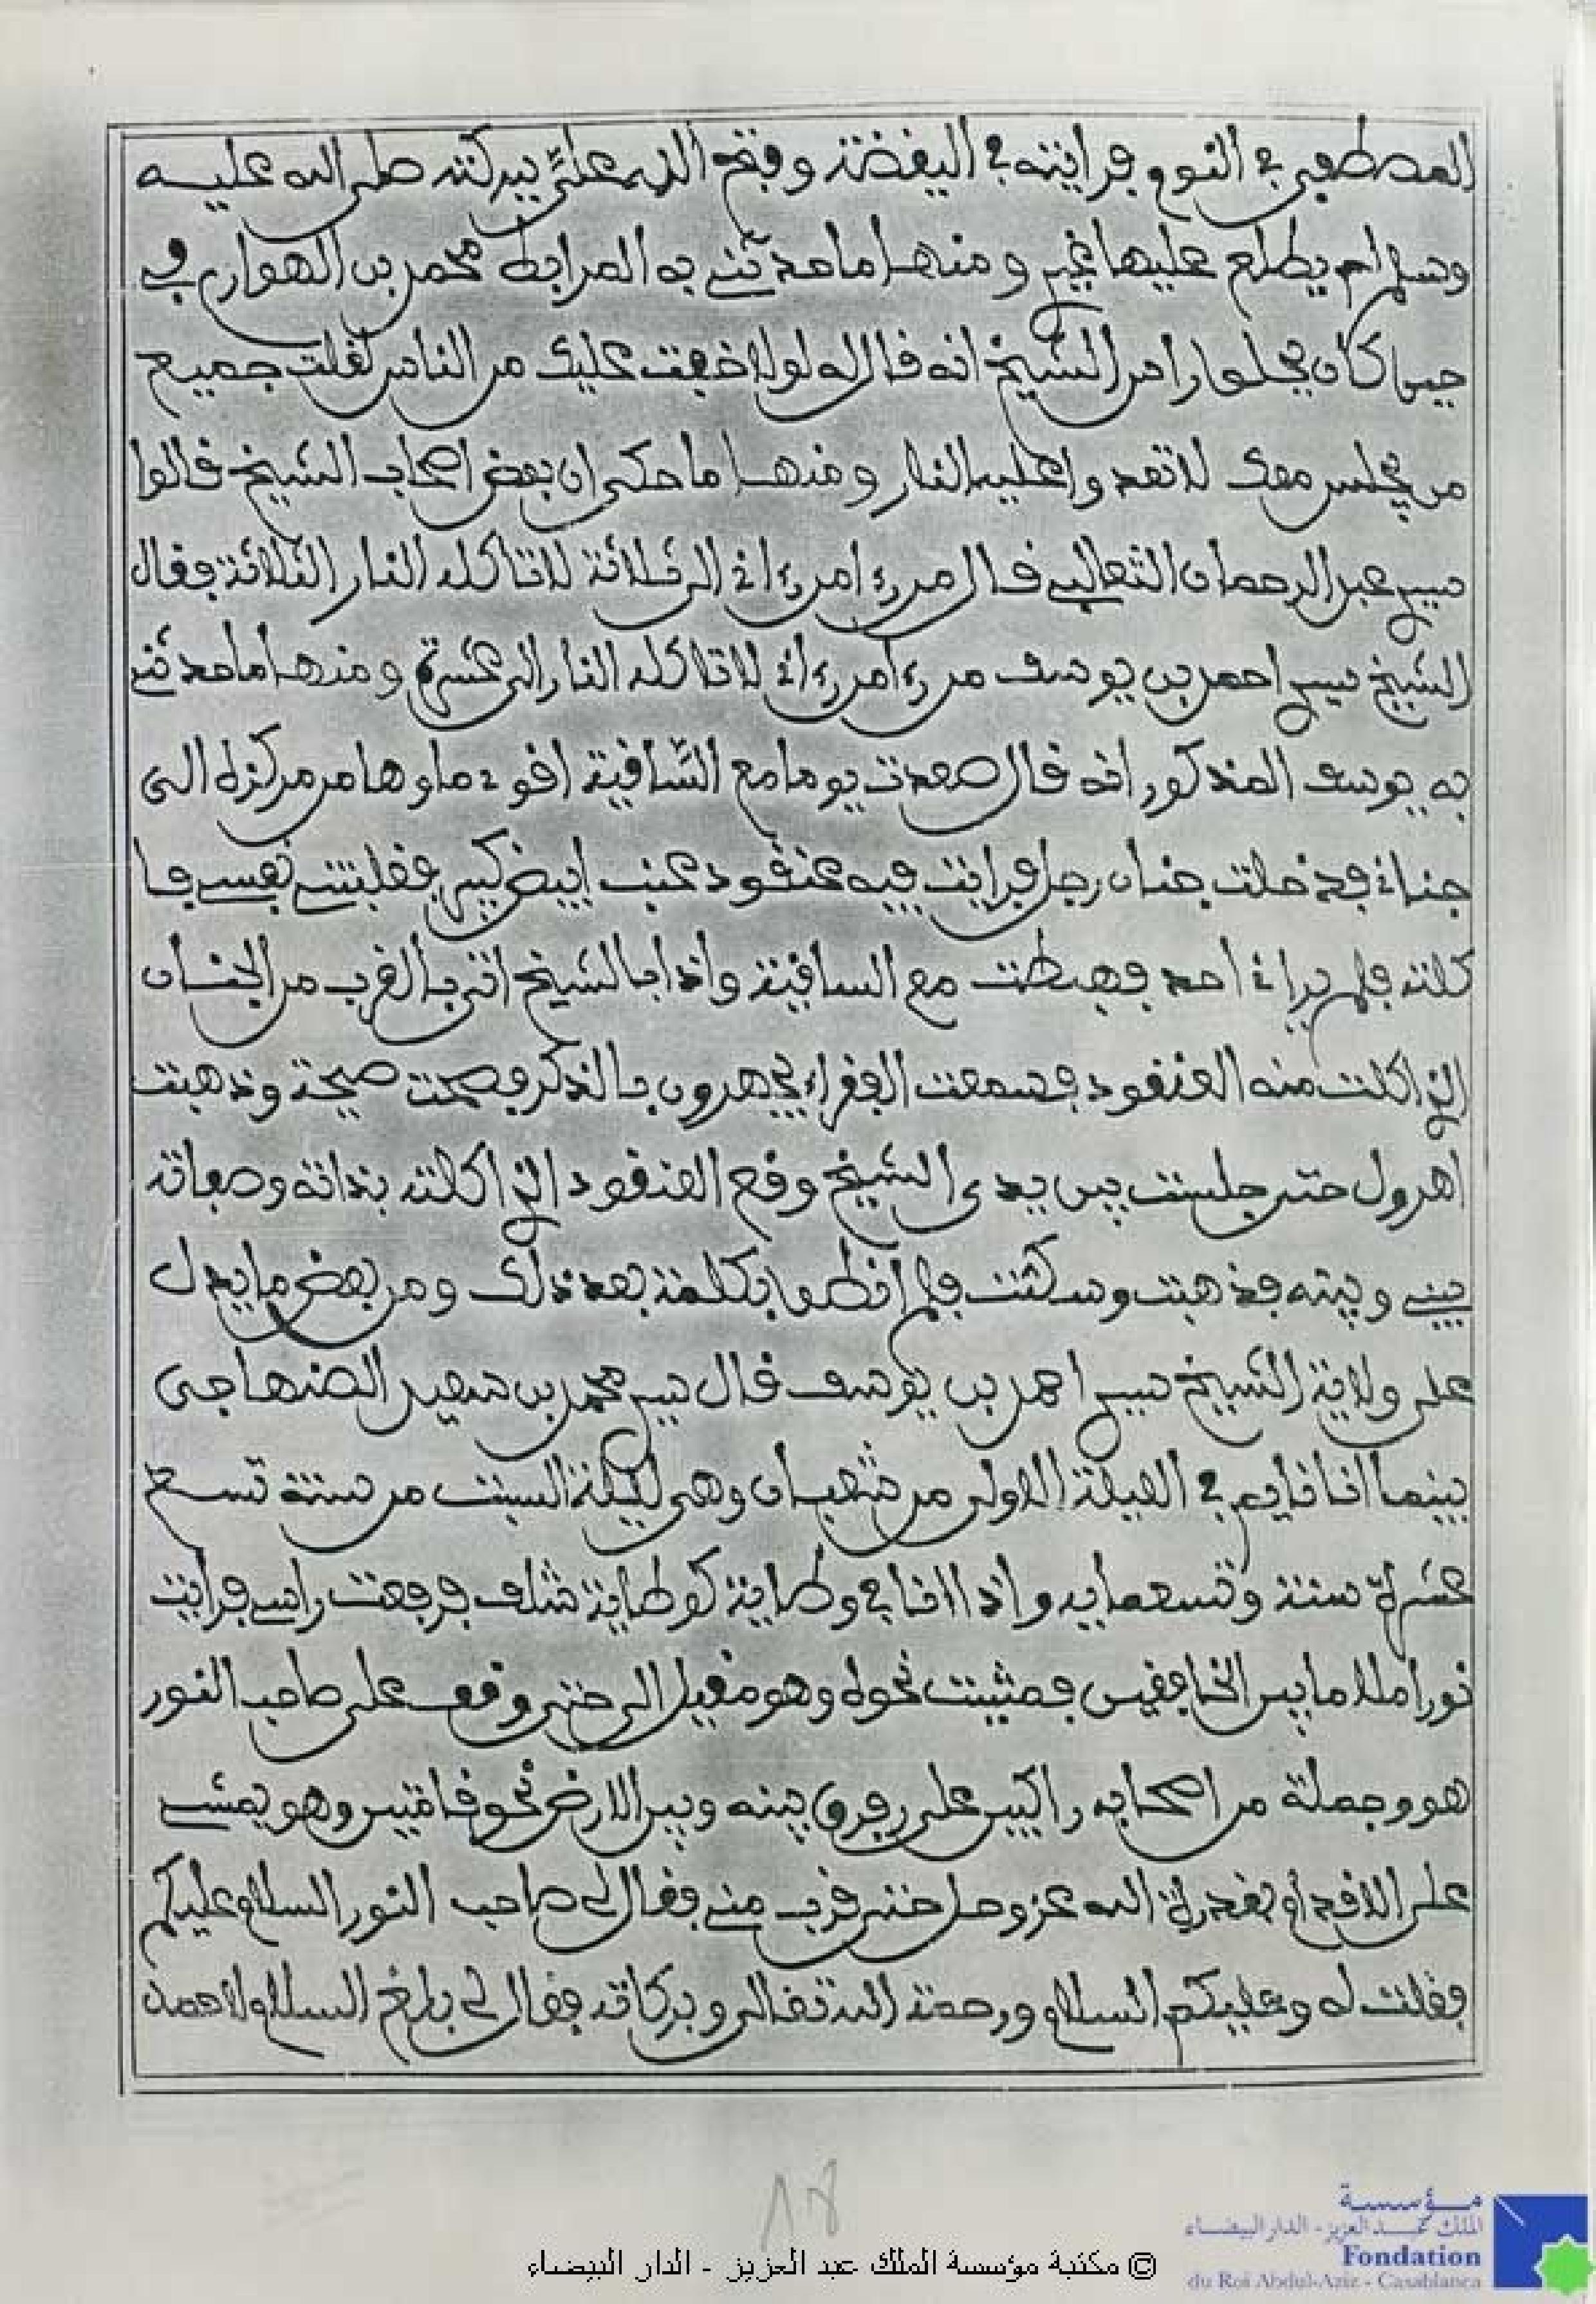 المصطفى في النوم فرايته في اليقضة وفتح الله علي ببركته صلى الله عليه
وسلم لم يطلع عليها غيري ومنها ما حدثني به المرابط محمد بن الهواري في
حين كان انه قال له لولا خفت عليك من الناس لقلت جميع
من يجلس معك لا تعدوا عليه النار ومنها ما حكي ان بعض اصحاب الشيخ قالوا
سيدي عبد الرحمان الثعالبي قال من رءا من رءاني الى ثلاثة لا تاكله النار الثلاثة فقال
الشيخ سيدي احمد بن يوسف من رءا من رءاني لا تاكله النار الى عشرة ومنها ما حدثني
به يوسف المذكور انه قال صعدت يوما مع الساقية اقود ماءها من مركزه الى
جناني فدخلت جنان رجل فرايت فيه عنقود عنب ابيض كبير فغلبتني نفسي فا
كلته فلم يراني احد فهبطت مع الساقية واذا بالشيخ اتى بالقرب من الجنان
الذي اكلت منه العنقود فسمعت الفقراء يجهرون بالذكر فصحت صيحة وذهبت
اهرول حتى جلست بين يدي الشيخ وقع العنقود الذي اكلته بذاته وصفاته
بيني وبينه فذهبت وسكتت فلم انطق بكلمة بعد ذلك ومن بعض ما يدل
على ولاية الشيخ سيدي احمد بن يوسف قال سيدي محمد بن سعيد الصنهاجي
بينما انا نايم في الليلة الاولى من شعبان وهي ليلة السبت من سنة تسع
عشرة سنة وتسعمايه واذا انا في وطاية كوطاية شلف فرفعت راسي فرايت
نورا ملا ما بين الخافقين فمشيت نحوه وهو مقبل الي حتى وقف علي صاحب النور
هو وجملة من اصحابه راكبين على بينه وبين الارض نحو قامتين وهو يمشي
على الاقدام بقدرة الله عز وجل حتى قرب مني فقال لي صاحب النور السلام عليكم
فقلت له وعليكم السلام ورحمة الله تعالى وبركاته فقال لي بلغ السلام لاحمد
٨٨
© مكتبة مؤسسة الملك عبد العزيز - الدار البيضاء
مؤسسة
الملك عبد العزيز - الدار البيضاء
Fondation
du Roi Abdul-Aziz - Casablanca